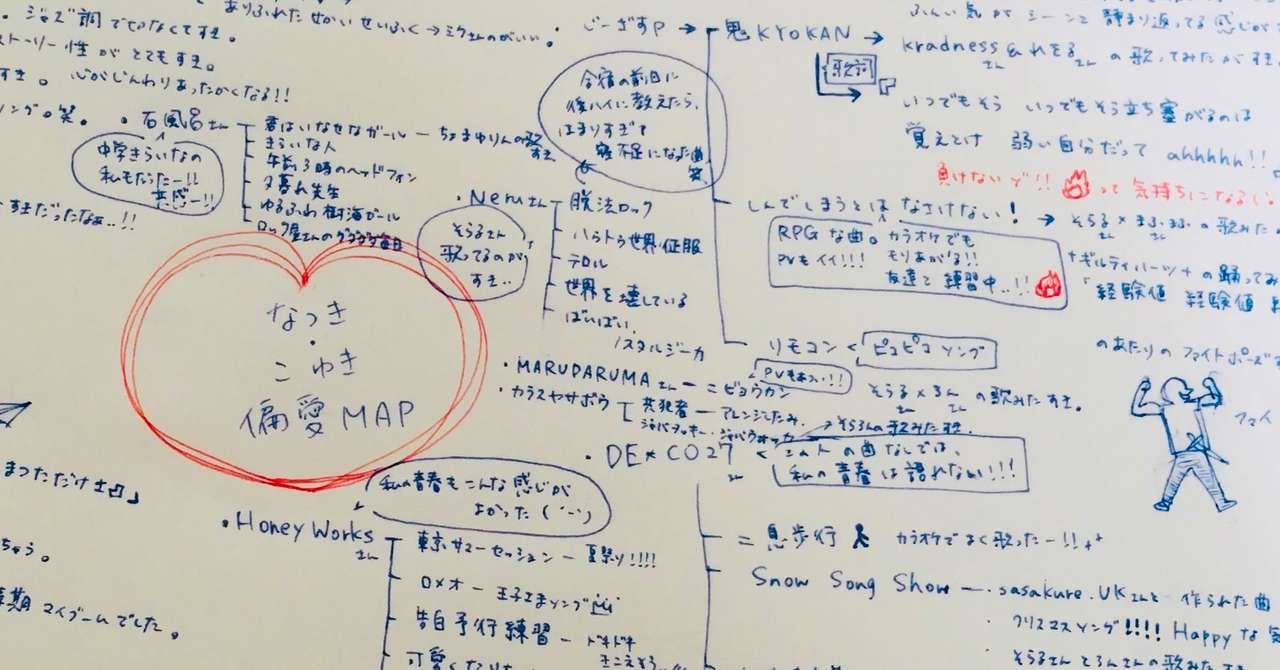 ありふれたせかいせいふく→ミクさんのがいい。
・ジャズ調でせなくてすき。
ストーリー性がとてもすき。
すき。心がじんわりあったかくなる!!
ング。笑。
・石風呂さん
君はいなせなガール ー ちょまゆりんの歌
すき
きらいな人
午前3時のヘッドフォン
夕暮れ先生
ゆるふわ樹海ガール
ロック屋さんのぐだぐだ毎日
中学きらいなの
私もだったー!!
共感ー!!
すきだったなぁ..!!
なつき
・
こわき
偏愛MAP
・じーざすP→
鬼KYOKAN→
歌詞
ふんい気がシーンと静まり返ってる感じが
kradness&れをる の歌ってみたがすき
さん さん
いつでもそう いつでもそう立ち塞がるのは
覚えとけ 弱い自分だって ahhhhh!!
負けないぞ!! って気持ちになる
合宿の前日に
後ハイに教えたら、
はまりすぎて
寝不足になった曲
笑
・Neruさん
脱法ロック
ハウトゥ世界征服
テロル
世界を壊している
ばいばい、
ノスタルジーカ
そらるさん
歌ってるのが
すき..
しんでしまうとはなさけない!→そらる×まふまふの歌みた
さん さん
RPGな曲。カラオケでも
PVもイイ!!!もりあがる!!
友達と練習中..!!
+ギルティハーツ+の踊ってみ
「経験値 経験値
のあたりのファイトポーズ
ファイ
リモコン<ピコピコソング
PVもあつい!!
そらる×ろん の歌みたすき。
さん さん
・MARUDARUMAさんー ニビョウカン
・カラスヤサボウ
共犯者ーアレンジこたみ、
ジャバヲッキー・ジャバヲッカ
→そらろんの歌みた
・DE★CO27
さん
この人の曲なしでは、
私の青春は語れない!!!
二息歩行 カラオケでよく歌ったー!!++
Snow Song Show ー ・sasakure.UKさんと作られた曲
・クリスマスソング!!!! Happyな
・そらるさんとろんさんの歌みた
私の青春もこんな感じが
よかった(´ー`)
・Honey Works
さん
東京サマーセッションー夏祭り!!!!
ロメオー王子さまソング
告白予行練習ードキドキ
きこえそう..
可愛くなりた
まつただけさ」
ちゃう。
期マイブームでした。